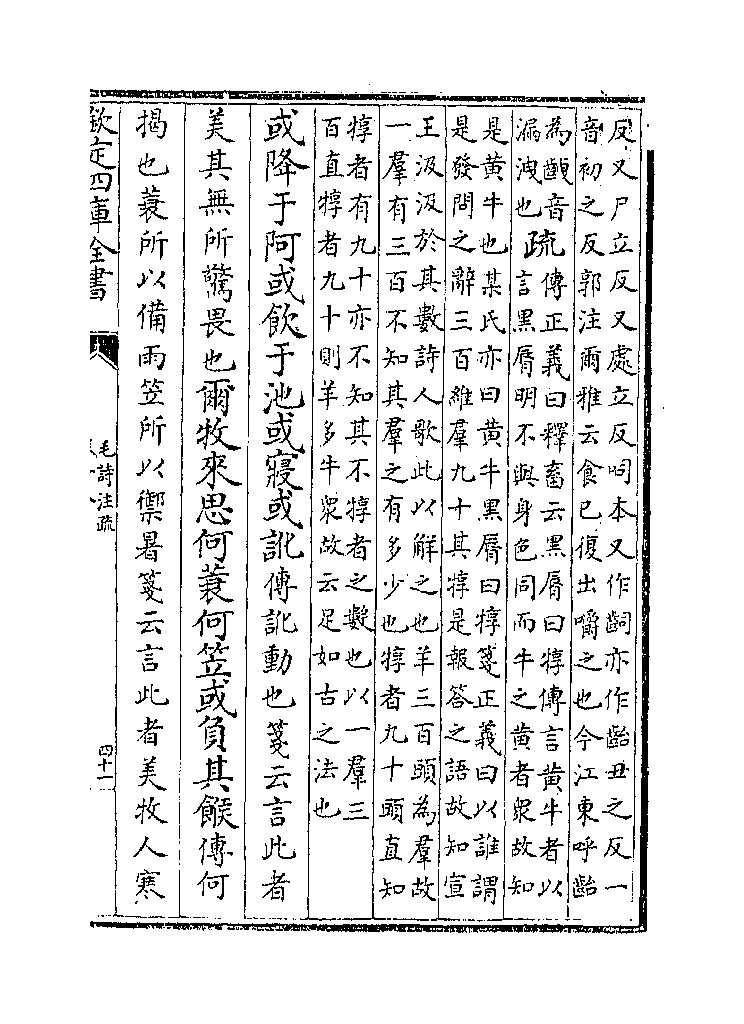 反又尸立反又處立反呞本又作齝亦作齝丑之反一
音初之反郭注爾雅云食已復出嚼之也今江東呼齝
為齥音
漏洩也
疏
傳正義曰釋畜云黑脣曰犉傳言黄牛者以
言黑脣明不與身色同而牛之黄者衆故知
是黄牛也某氏亦曰黄牛黑脣曰犉箋正義曰以誰謂
是發問之辭三百維羣九十其犉是報答之語故知宣
王汲汲於其數詩人歌此以解之也羊三百頭為羣故
一羣有三百不知其羣之有多少也犉者九十頭直知
犉者有九十亦不知其不犉者之數也以一羣三
百直犉者九十則羊多牛衆故云足如古之法也
或降于阿或飲于池或寢或訛傳訛動也箋云言此者
美其無所驚畏也爾牧來思何蓑何笠或負其餱傳何
揭也蓑所以備雨笠所以禦暑箋云言此者美牧人寒
欽定四庫全書
毛詩注疏
四十一